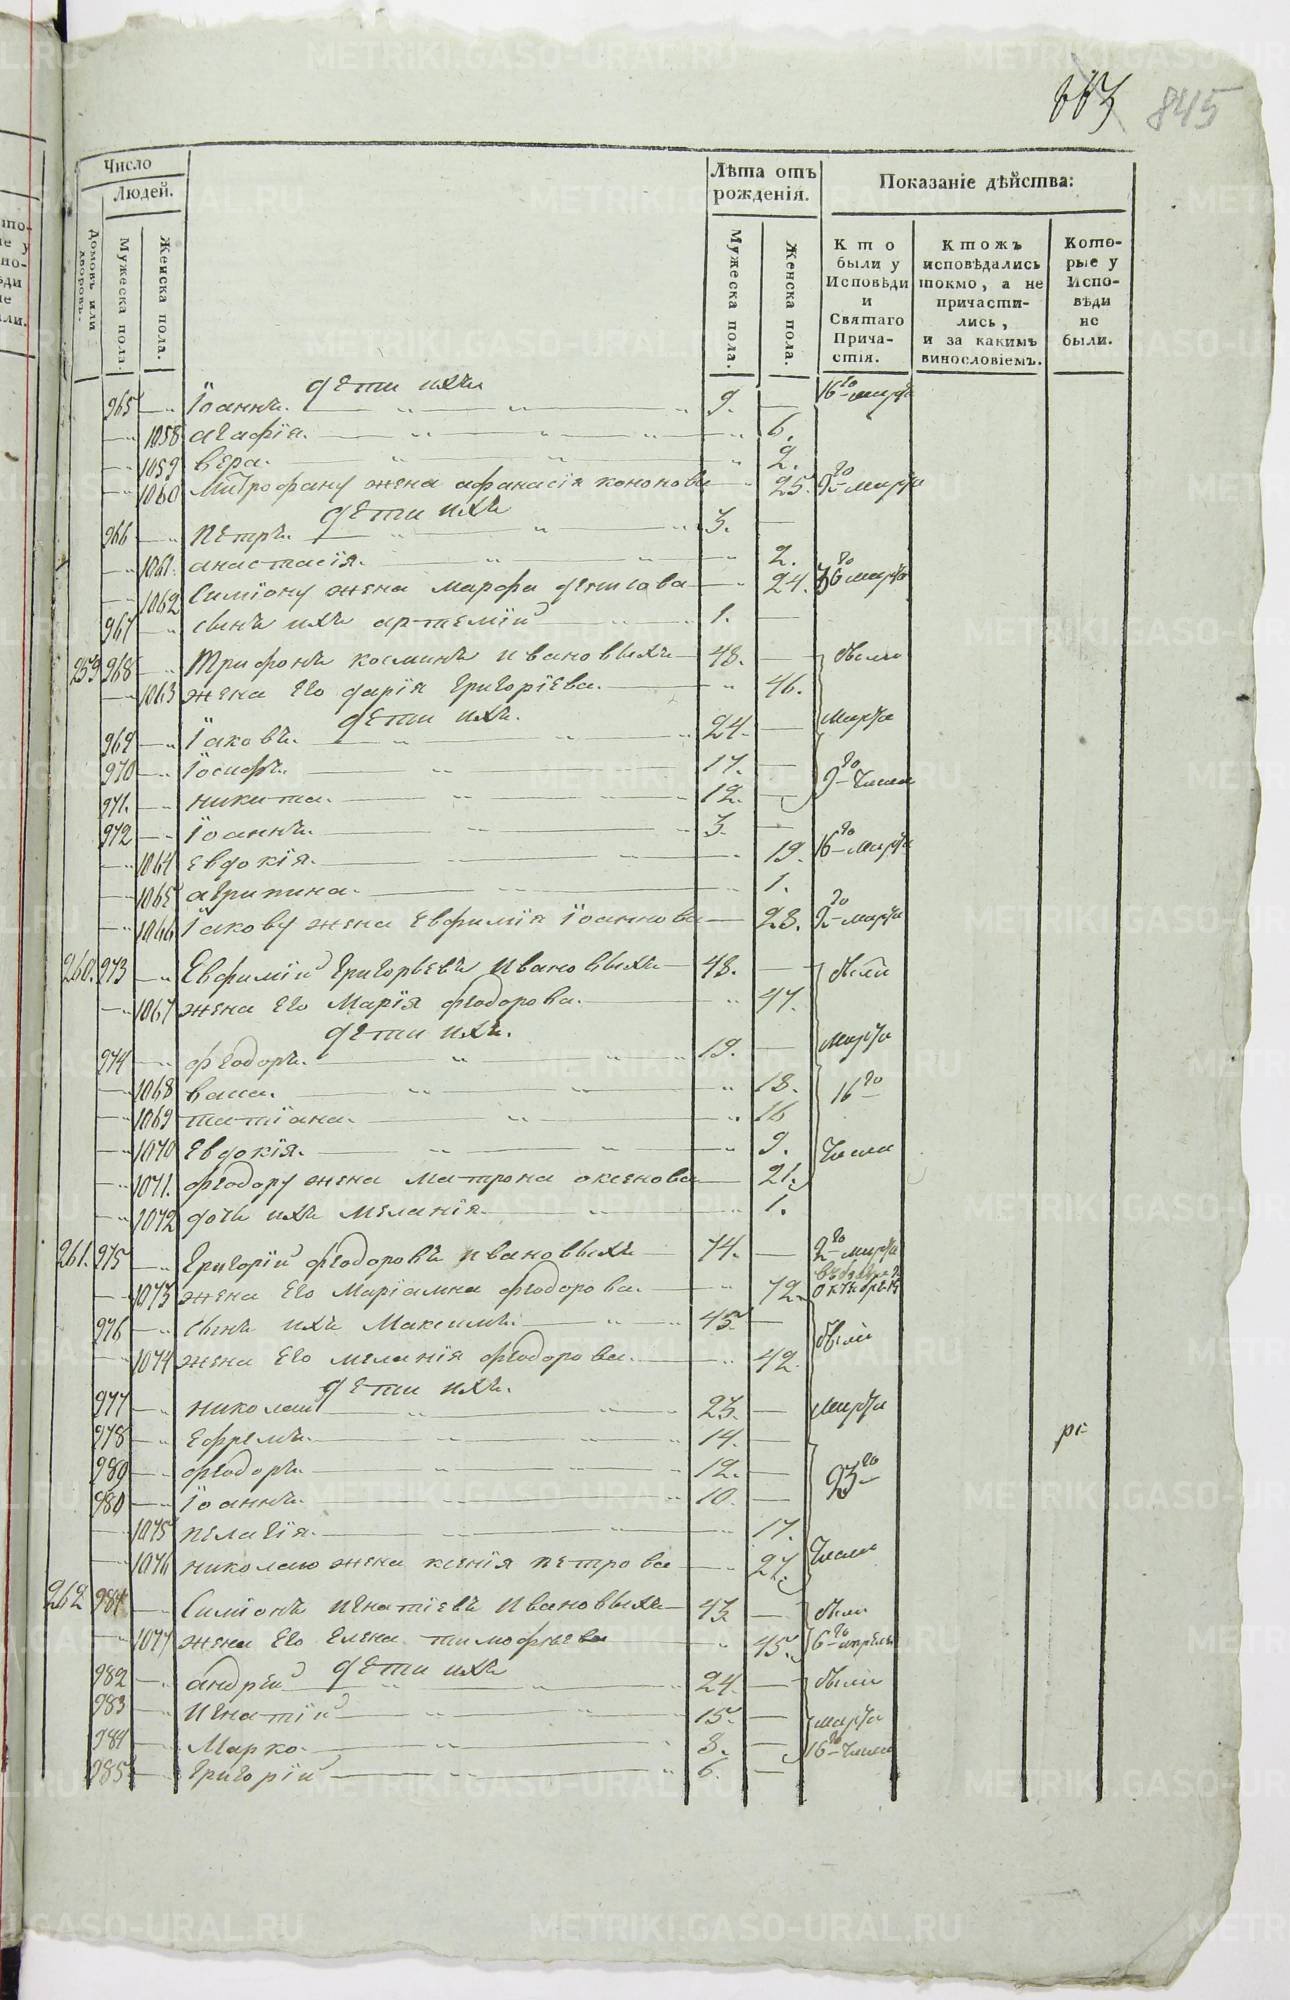 663 845
Число Людей.
Домовъ или дворовъ.
Мужеска пола.
Женска пола.
Лѣта отъ рожденія.
Мужеска пола.
Женска пола.
Показаніе дѣйства:
Кто были у Исповѣди и Святаго Прича-стія.
Ктожъ исповѣдались токмо, а не причасти-лись, и за какимъ винословіемъ.
Кото-рые у Испо-вѣди не были.
дѣти ихъ
965 Іоаннъ. 9. 16го марта
1058 агафія. 6.
1059 вѣра. 2.
1060 Митрофану жена афанасія кононова 25. 9го марта
дѣти ихъ
966 петръ. 3.
1061. анастасія. 2.
1062 Симіону жена марфа денисова 24. 16го марта
967 сынъ ихъ артемій 1.
259 968 Трифонъ косминъ ивановыхъ 48. были
1063 жена его дарія григоріева. 46.
дѣти ихъ. марта
969 Іаковъ. 24.
970 Іосифъ. 17. 9го числа
971. никита. 12.
972 Іоаннъ. 3.
1064 евдокія. 19. 16го марта
1065 агрипина. 1.
1066 Іакову жена евфимія Іоаннова 23. 9го марта
260. 973 Евфимій григорьевъ ивановыхъ 48. были
1067 жена его Марія феодорова. 47.
дѣти ихъ. марта
974 феодоръ. 19.
1068 васса. 18. 16го
1069 татіана. 16
1070 евдокія. 9. числа
1071. феодору жена матрона аксенова 21.
1072 дочь ихъ меланія 1.
261. 975 григорій феодоровъ ивановыхъ 74. 9го марта
1073 жена его Маріамна феодорова. 72.
976 сынъ ихъ Максимъ. 45 были
1074 жена его меланія феодорова. 42
дѣти ихъ.
977 николай 23. марта
978 ефремъ. 14.
989 феодоръ. 12. 23го
980 Іоаннъ. 10.
1075 пелагія. 17.
1076 николаю жена ксенія петрова 27. числа
262 981 Симіонъ игнатіевъ ивановыхъ 43 были
1077 жена его елена тимофеева 45. 6го апрѣля
дѣти ихъ
982 андрей 24. были
983 игнатій 15. марта
984 Марко. 8. 16го числа
985 григорій 6.
METRIKI.GASO-URAL.RU